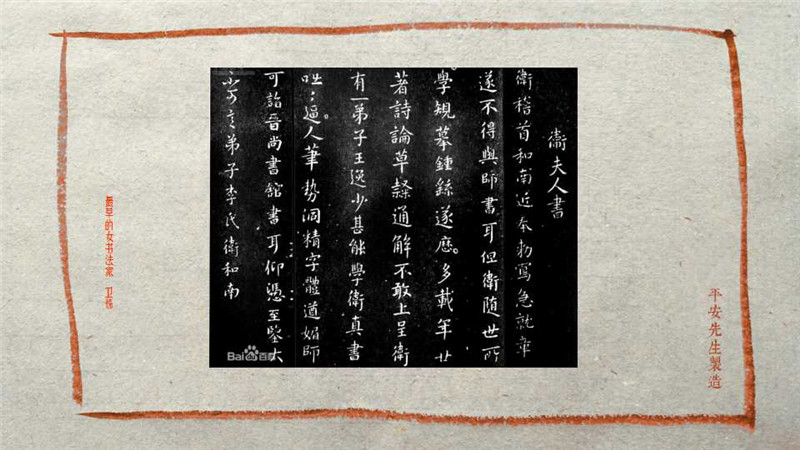 衛夫人書
衛稽首和南近奉勑寫急就章
遂不得與師書耳但衛随世所
學規摹鍾繇遂歷多載年廿
著詩論草隸通解不敢上呈衛
有一弟子王逸少甚能學衛真書
咄咄逼人筆势洞精字體遒媚師
可詣晉尚書館書耳仰憑至鑒大
不可言弟子李氏衛和南
最早的女书法家 卫铄
平安先生製造
Bai百科